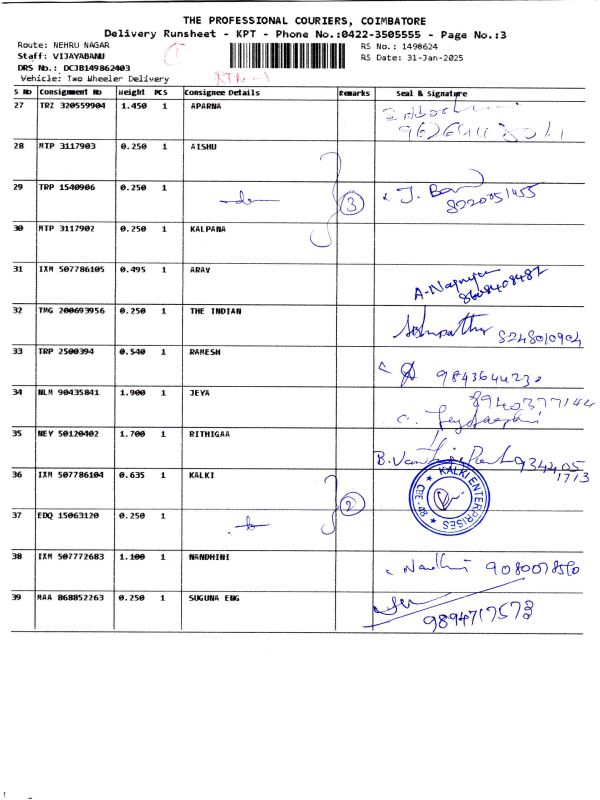 THE PROFESSIONAL COURIERS, COIMBATORE
Delivery Runsheet - KPT - Phone No.:0422-3505555 - Page No.:3
Route: NEHRU NAGAR
RS No.: 1490624
Staff: VIJAYABANU
RS Date: 31-Jan-2025
DRS No.: DCJB149862403
Vehicle: Two Wheeler Delivery
RTN-1
S No Consignment No Weight PCS Consignee Details Remarks Seal & Signature
27 TRZ 320559904 1.450 1 APARNA
28 MTP 3117903 0.250 1 AISHU
29 TRP 1540906 0.250 1 3 J. Ban
8220051455
30 MTP 3117902 0.250 1 KALPANA
31 IXM 507786105 0.495 1 ARAV
8608408487
32 TMG 200693956 0.250 1 THE INDIAN
8248010904
33 TRP 2500394 0.540 1 RAMESH
34 NLM 90435841 1.900 1 JEYA 8940377144
35 NEY 50120402 1.700 1 RITHIGAA
934405
1713
36 IXM 507786104 0.635 1 KALKI 2 KALKI ENTERPRISES
37 EDQ 15063120 0.250 1
38 IXM 507772683 1.100 1 NANDHINI
39 MAA 868852263 0.250 1 SUGUNA ENG
9894717573